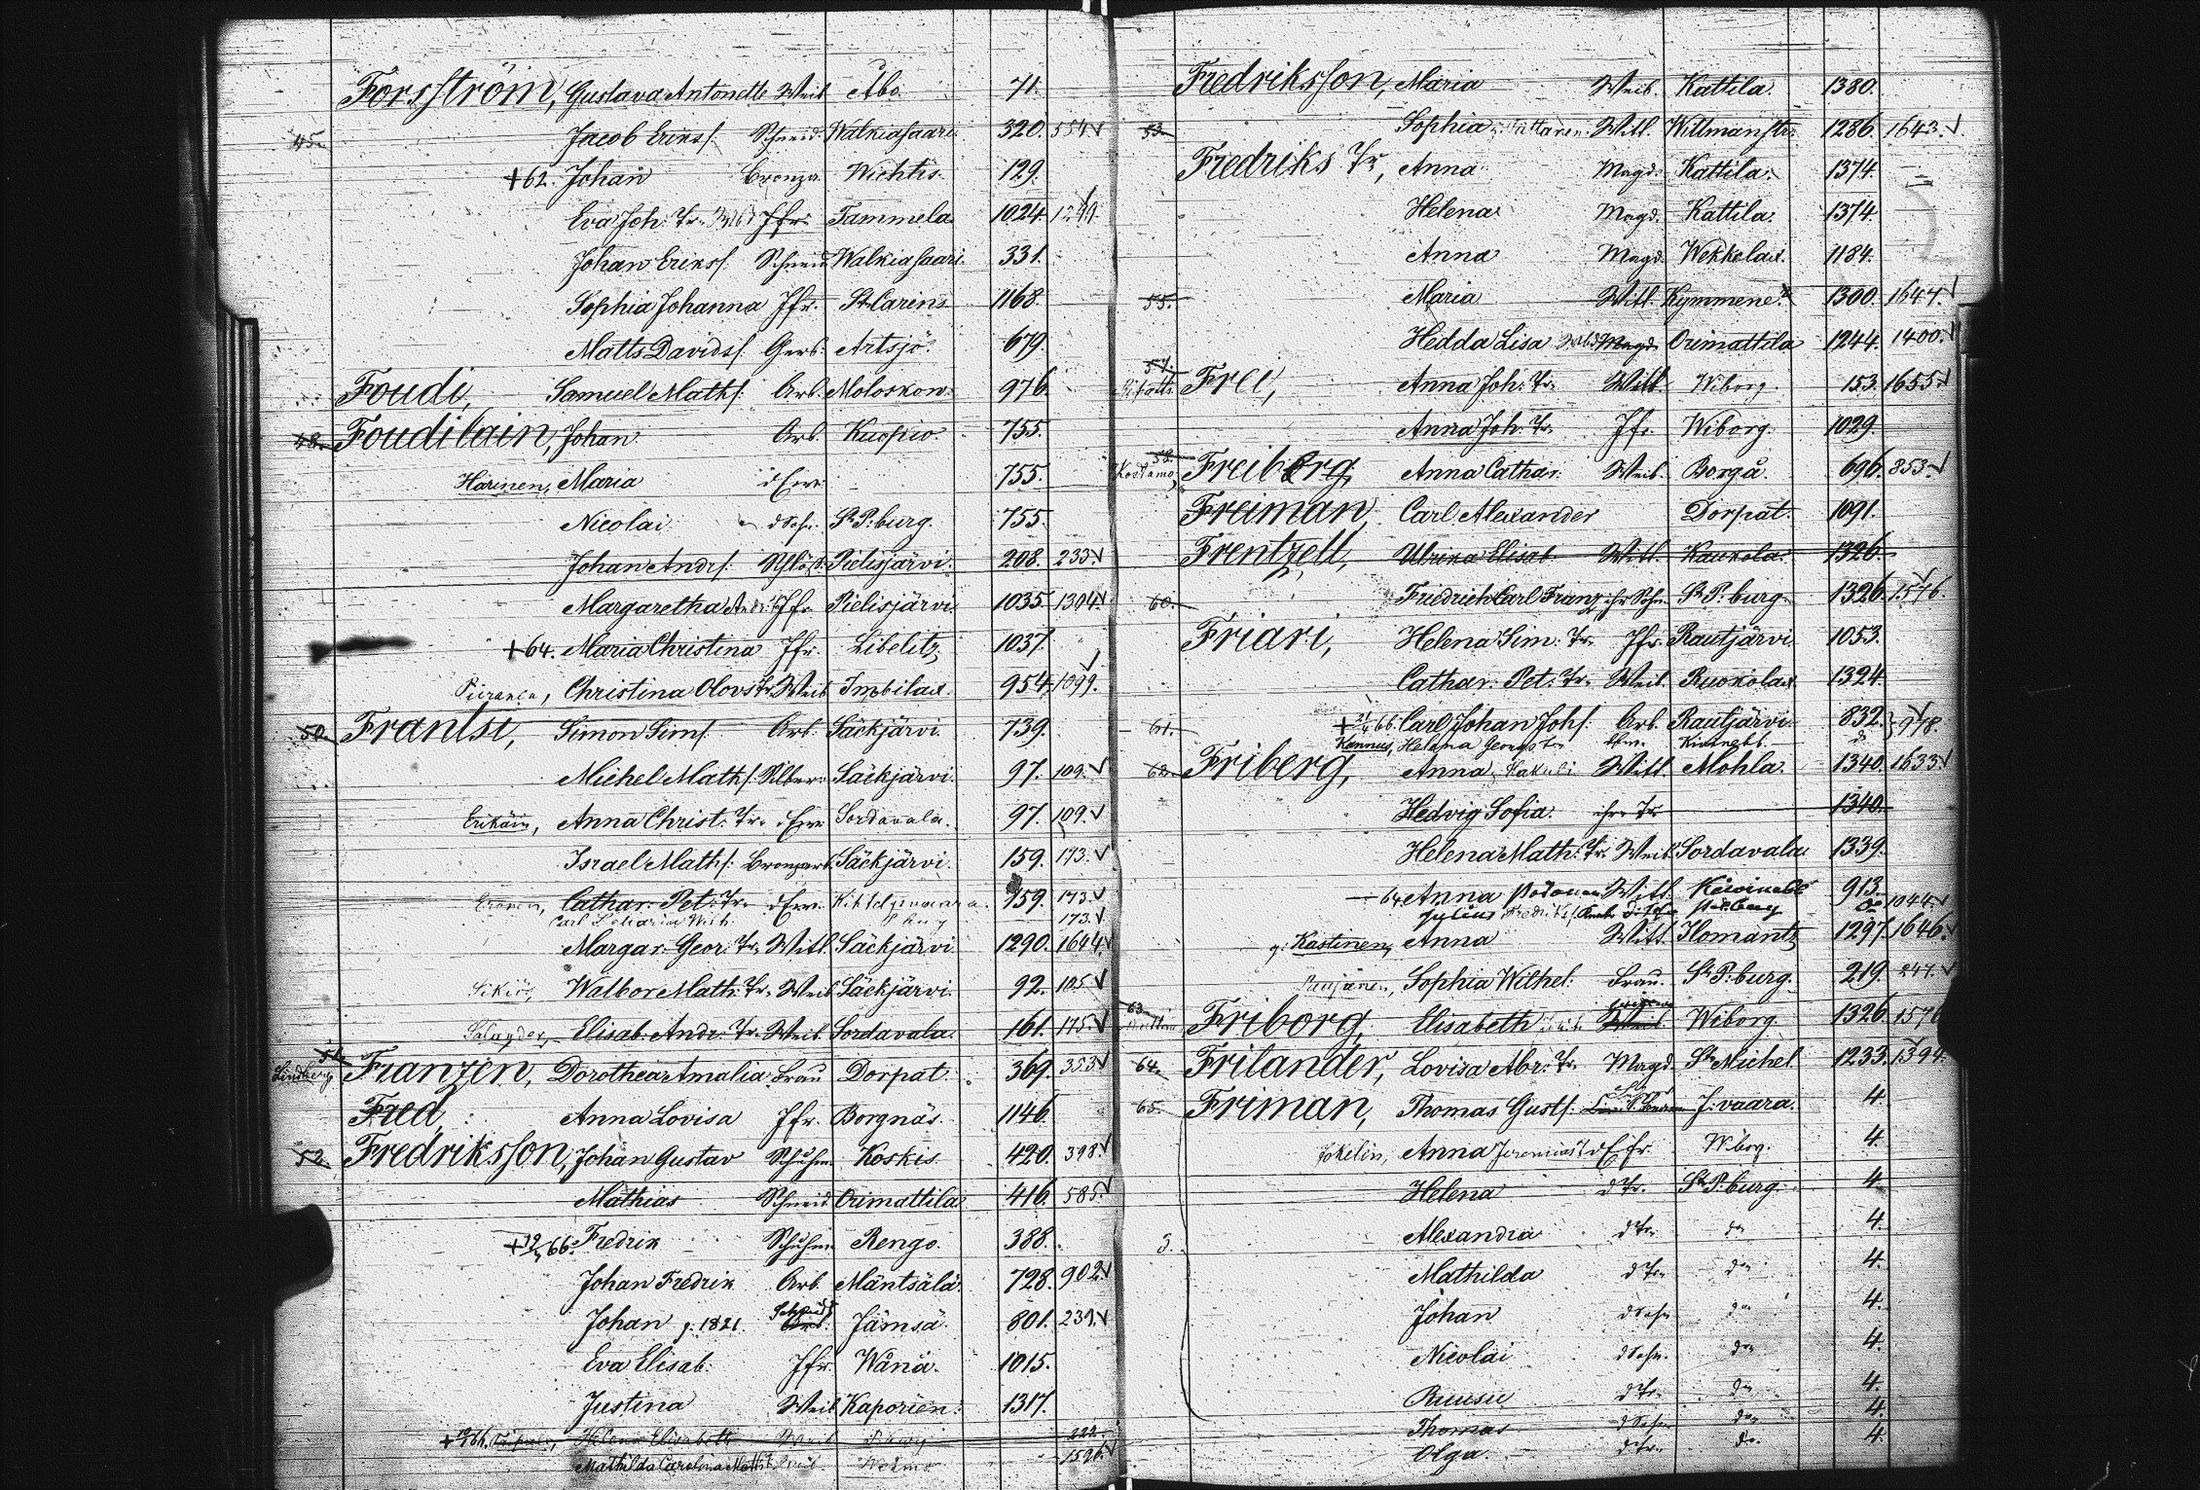 Forsström, Gustava Antonette Weib Åbo. 71.
45. Jacob Eriks/. Schneid Walkiasaari. 320. 554 √
+62. Johan Bronzar. Wichtis. 129.
Eva Joh: Tr. Jfr. Tammela 1024. 1299.
Johan Eriks/. Schneid Walkiasaari. 331.
Sophia Johanna Jfr. St Carins 1168.
Matts Davids/. Gerb. Artsjö. 679.
Foudi, Samuel Maths/. Arb. Moloskow. 976.
48. Foudilain, Johan Arb. Kuopio. 755.
Härinen, Maria d Frau 755.
Nicolai d Sohn. St P:burg. 755.
Johan Andrs/. Schlöß. Pielisjärvi. 208. 233. √
Margaretha Andrs Jfr. Pielisjärvi 1035. 1304. √
+64. Maria Christina Jfr. Libelitz 1037.
Christina Olovs Tr. Weib Imbilax. 954. 1099. √
50. Frantsi, Simon Sims/. Arb. Säckjärvi. 739.
Michel Maths/. Silber. Säckjärvi. 97. 109. √
Erikäin, Anna Christ: Tr. d Frau Sordavala. 97. 109. √
Israel Maths/. Bronzarb. Säckjärvi. 159. 173. √
Cathar: Pet: Tr. d Frau. 159. 173. √
173. √
Margar: Geor: Tr. Witt. Säckjärvi. 1290. 1644. √
Walbor Math: Tr. Weib Säckjärvi. 92. 105. √
Elisab: Andr: Tr. Weib. Sordavala. 161. 175. √
51. Lindberg, Franzen, Dorothea Amalia Frau Dorpat. 369. 353 √
Fred, Anna Lovisa Jfr. Borgnäs. 1146.
52. Fredriksson, Johan Gustav Schuhm. Koskis. 420. 398. √
Mathias Schneid Orimattila. 416. 585. √
66. Fredrik Schuhm. Rengo. 388.
Johan Fredrik Arb. Mäntsälä. 728. 902. √
Johan g. 1821. Schneid Jämsä. 801. 239. √
Eva Elisab. Jfr. Wånå. 1015.
Justina Weib Kaporien. 1317.
Helena Elisabeth Weib 222.
Mathilda Carolina Weib 1596. √
Fredriksson, Maria Weib. Kattila. 1380.
53. Sophia Witt. Willmanstr. 1286. 1643. √
Fredriks Tr, Anna Magd. Kattila. 1374.
Helena Magd. Kattila. 1374.
Anna Magd. Wekkelax. 1184.
55. Maria Witt. Kymmene. 1300. 1647. √
Hedda Lisa Magd. Orimattila 1244. 1400. √
57. Frei, Anna Joh: Tr. Witt. Wiborg. 153. 1655. √
Anna Joh: Tr. Jfr. Wiborg. 1029.
58. Freiberg, Anna Cathar. Weib. Borgå. 696. 853. √
Freiman, Carl Alexander Dorpat. 1091.
Frentzell, Ulrika Elisab. Witt. Kaukola. 1326.
60. Friedrich Carl Franz ihr Sohn St P:burg. 1326. 1576. √
Friari, Helena Sim: Tr. Jfr. Rautjärvi. 1053.
Cathar: Pet: Tr. Weib. Ruokolax. 1324.
61. 66. Carl Johan Johs/. Arb. Rautjärvi. 832. 978. √
Kannus, Helena Georgs Tr.
62. Friberg, Anna Hakuli Witt. Mohla. 1340. 1633. √
Hedvig Sofia. ihre Tr. 1340.
Helena Math: Tr. Weib. Sordavala. 1339.
64 Anna Witt. Kiwineb 913.
Julius Fredriks/. P:burg 1044. √
g. Kastinen, Anna Witt. Ilomants 1297. 1646. √
Sophia Wilhel: Frau. St P:burg. 219. 247. √
63. Friborg, Elisabeth Wiborg. 1326. 1576
64. Frilander, Lovisa Abr: Tr. Magd. St Michel. 1233. 1394.
65. Friman, Thomas Gusts/. J:vaara. 4.
Jokelin, Anna Jeremias T. d Efr. Wiborg. 4.
Helena d Tr. St P:burg. 4.
Alexandra d Tr. do 4.
Mathilda d Tr. do 4.
Johan d Sohn do 4.
Nicolai d Sohn. do 4.
Ruusu d Tr. do 4.
Thomas d Sohn do 4.
Olga d Tr. do. 4.